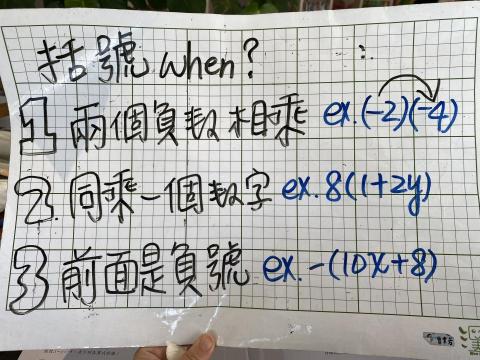 括號 when?
1 兩個負數相乘 ex.(-2)(-4)
2. 同乘一個數字 ex. 8(1+2y)
3 前面是負號 ex. -(10x+8)